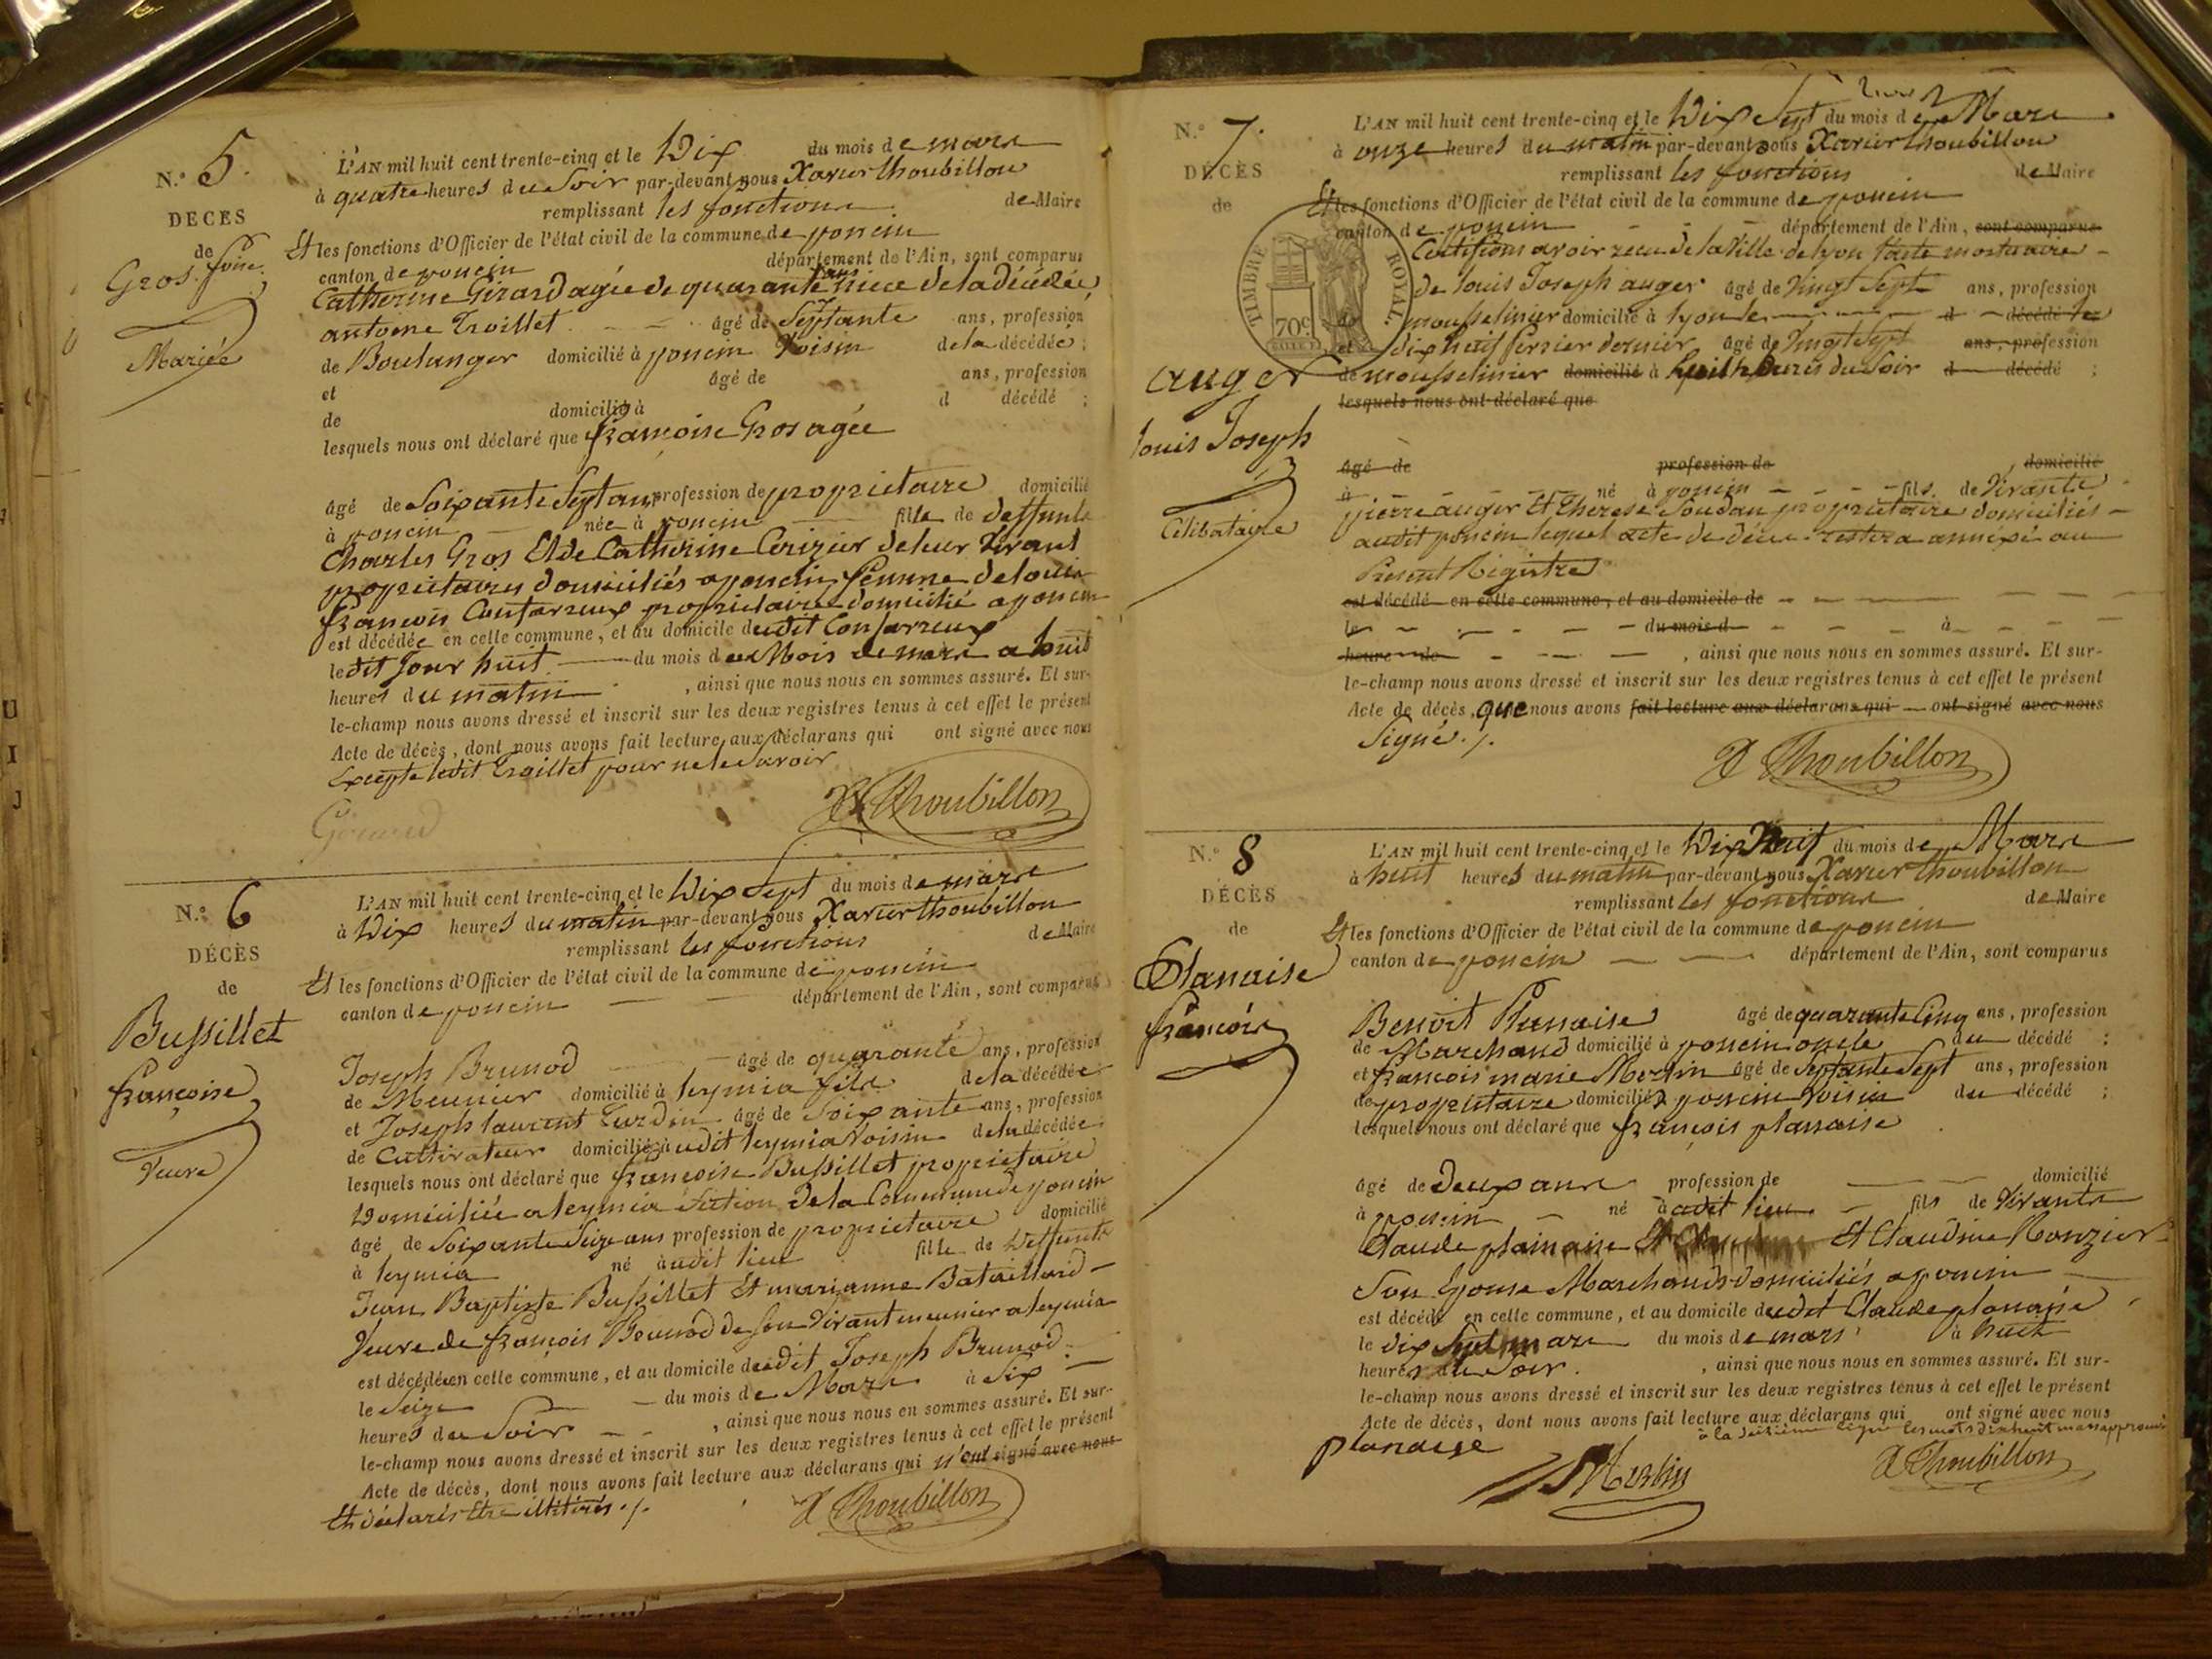 N.° 5.
DECES
de
Gros. foise.
Mariée
L'AN mil huit cent trente-cinq et le Dix du mois de mars
à quatre heures du Soir par-devant nous Xavier thoubillon
remplissant les fonctions de Maire
Et les fonctions d'Officier de l'état civil de la commune de poncin
canton de poncin département de l'Ain, sont comparus
Catherine Girard agée de quarante ans niece de la décédée
antoine Troillet âgé de Septante ans, profession
de Boulanger domicilié à poncin Voisin de la décédée ;
et âgé de ans, profession
de domicilié à d décédé ;
lesquels nous ont déclaré que françoise Gros agée
âgé de Soixante Sept ans profession de propriétaire domicilié
à poncin née à poncin fille de deffunts
Charles Gros Et de Catherine Cerizier de leur vivant
proprietaires domiciliés a poncin femme de louis
françois Confarreux proprietaire domicilié a poncin
est décédée en celle commune, et au domicile dudit Confarreux
ledit Jour huit du mois de Mois de mars a huit
heures du matin , ainsi que nous nous en sommes assuré. Et sur-
le-champ nous avons dressé et inscrit sur les deux registres tenus à cet effet le présent
Acte de décès, dont nous avons fait lecture aux déclarans qui ont signé avec nous
Excepté ledit Troillet pour ne le Savoir
Girard X Thoubillon
N.° 6
DÉCÈS
de
Bussillet
françoise
Veuve
L'AN mil huit cent trente-cinq et le Dix Sept du mois de mars
à Dix heures du matin par-devant nous Xavier thoubillon
remplissant les fonctions de Maire
Et les fonctions d'Officier de l'état civil de la commune de poncin
canton de poncin département de l'Ain, sont comparus
Joseph Brunod âgé de quarante ans, profession
de Meunier domicilié à leymia fils de la décédée
et Joseph laurent Curdin âgé de Soixante ans, profession
de Cultivateur domicilié audit leymia Voisin de la décédée
lesquels nous ont déclaré que françoise Bussillet proprietaire
Domiciliée a leymia Section de la Commune de poncin
âgé de Soixante Seize ans profession de proprietaire domicilié
à leymia né audit lieu fille de Deffunts
Jean Baptiste Bussillet Et marianne Bataillard
Veuve de françois Brunod de Son Vivant meunier a leymia
est décédée en celle commune, et au domicile dudit Joseph Brunod
le Seize du mois de Mars à Six
heures du Soir , ainsi que nous nous en sommes assuré. Et sur-
le-champ nous avons dressé et inscrit sur les deux registres tenus à cet effet le présent
Acte de décès, dont nous avons fait lecture aux déclarans qui n'ont signé avec nous
Et déclarés Etre illitirés ./.
X Thoubillon
N.° 7.
DÉCÈS
de
auger
louis Joseph
Célibataire
L'AN mil huit cent trente-cinq et le Dix Sept du mois de Mars
à onze heures du matin par-devant nous Xavier thoubillon
remplissant les fonctions de Maire
Et les fonctions d'Officier de l'état civil de la commune de poncin
canton de poncin département de l'Ain, sont comparus
Certifions avoir recu de la Ville de lyon l'acte mortuaire
de louis Joseph auger âgé de Vingt Sept ans, profession
de mousselinier domicilié à lyon le d décédé le
et dix neuf fevrier dernier âgé de Vingt Sept ans, profession
de mousselinier domicilié à huit heures du Soir d décédé ;
lesquels nous ont déclaré que
âgé de profession de domicilié
à né à poncin fils de Vivants
pierre auger Et therese Soudan proprietaire domiciliés
audit poncin lequel acte de décès restera annexé au
Present Registre
est décédé en celle commune, et au domicile de
le du mois d à
heure de , ainsi que nous nous en sommes assuré. Et sur-
le-champ nous avons dressé et inscrit sur les deux registres tenus à cet effet le présent
Acte de décès, que nous avons fait lecture aux déclarans qui ont signé avec nous
Signé ./.
X Thoubillon
TIMBRE ROYAL.
70c
N.° 8
DÉCÈS
de
Planaise
françois
L'AN mil huit cent trente-cinq et le Dix Huit du mois de Mars
à huit heures du matin par-devant nous Xavier thoubillon
remplissant les fonctions de Maire
Et les fonctions d'Officier de l'état civil de la commune de poncin
canton de poncin département de l'Ain, sont comparus
Benoit Planaise âgé de quarante Cinq ans, profession
de Marchand domicilié à poncin oncle du décédé ;
et françois marie Merlin âgé de Septante Sept ans, profession
de proprietaire domicilié a poncin Voisin du décédé ;
lesquels nous ont déclaré que françois planaise
âgé de deux ans profession de domicilié
à poncin né audit lieu fils de Vivants
Claude planaise Et Claudine Monzier
Son Epouse Marchands domiciliés a poncin
est décédé en celle commune, et au domicile dudit Claude planaise
le dix Sept mars du mois de mars à huit
heures du Soir. , ainsi que nous nous en sommes assuré. Et sur-
le-champ nous avons dressé et inscrit sur les deux registres tenus à cet effet le présent
Acte de décès, dont nous avons fait lecture aux déclarans qui ont signé avec nous
à la les mots dix huit mars approuvés
planaise Merlin X Thoubillon